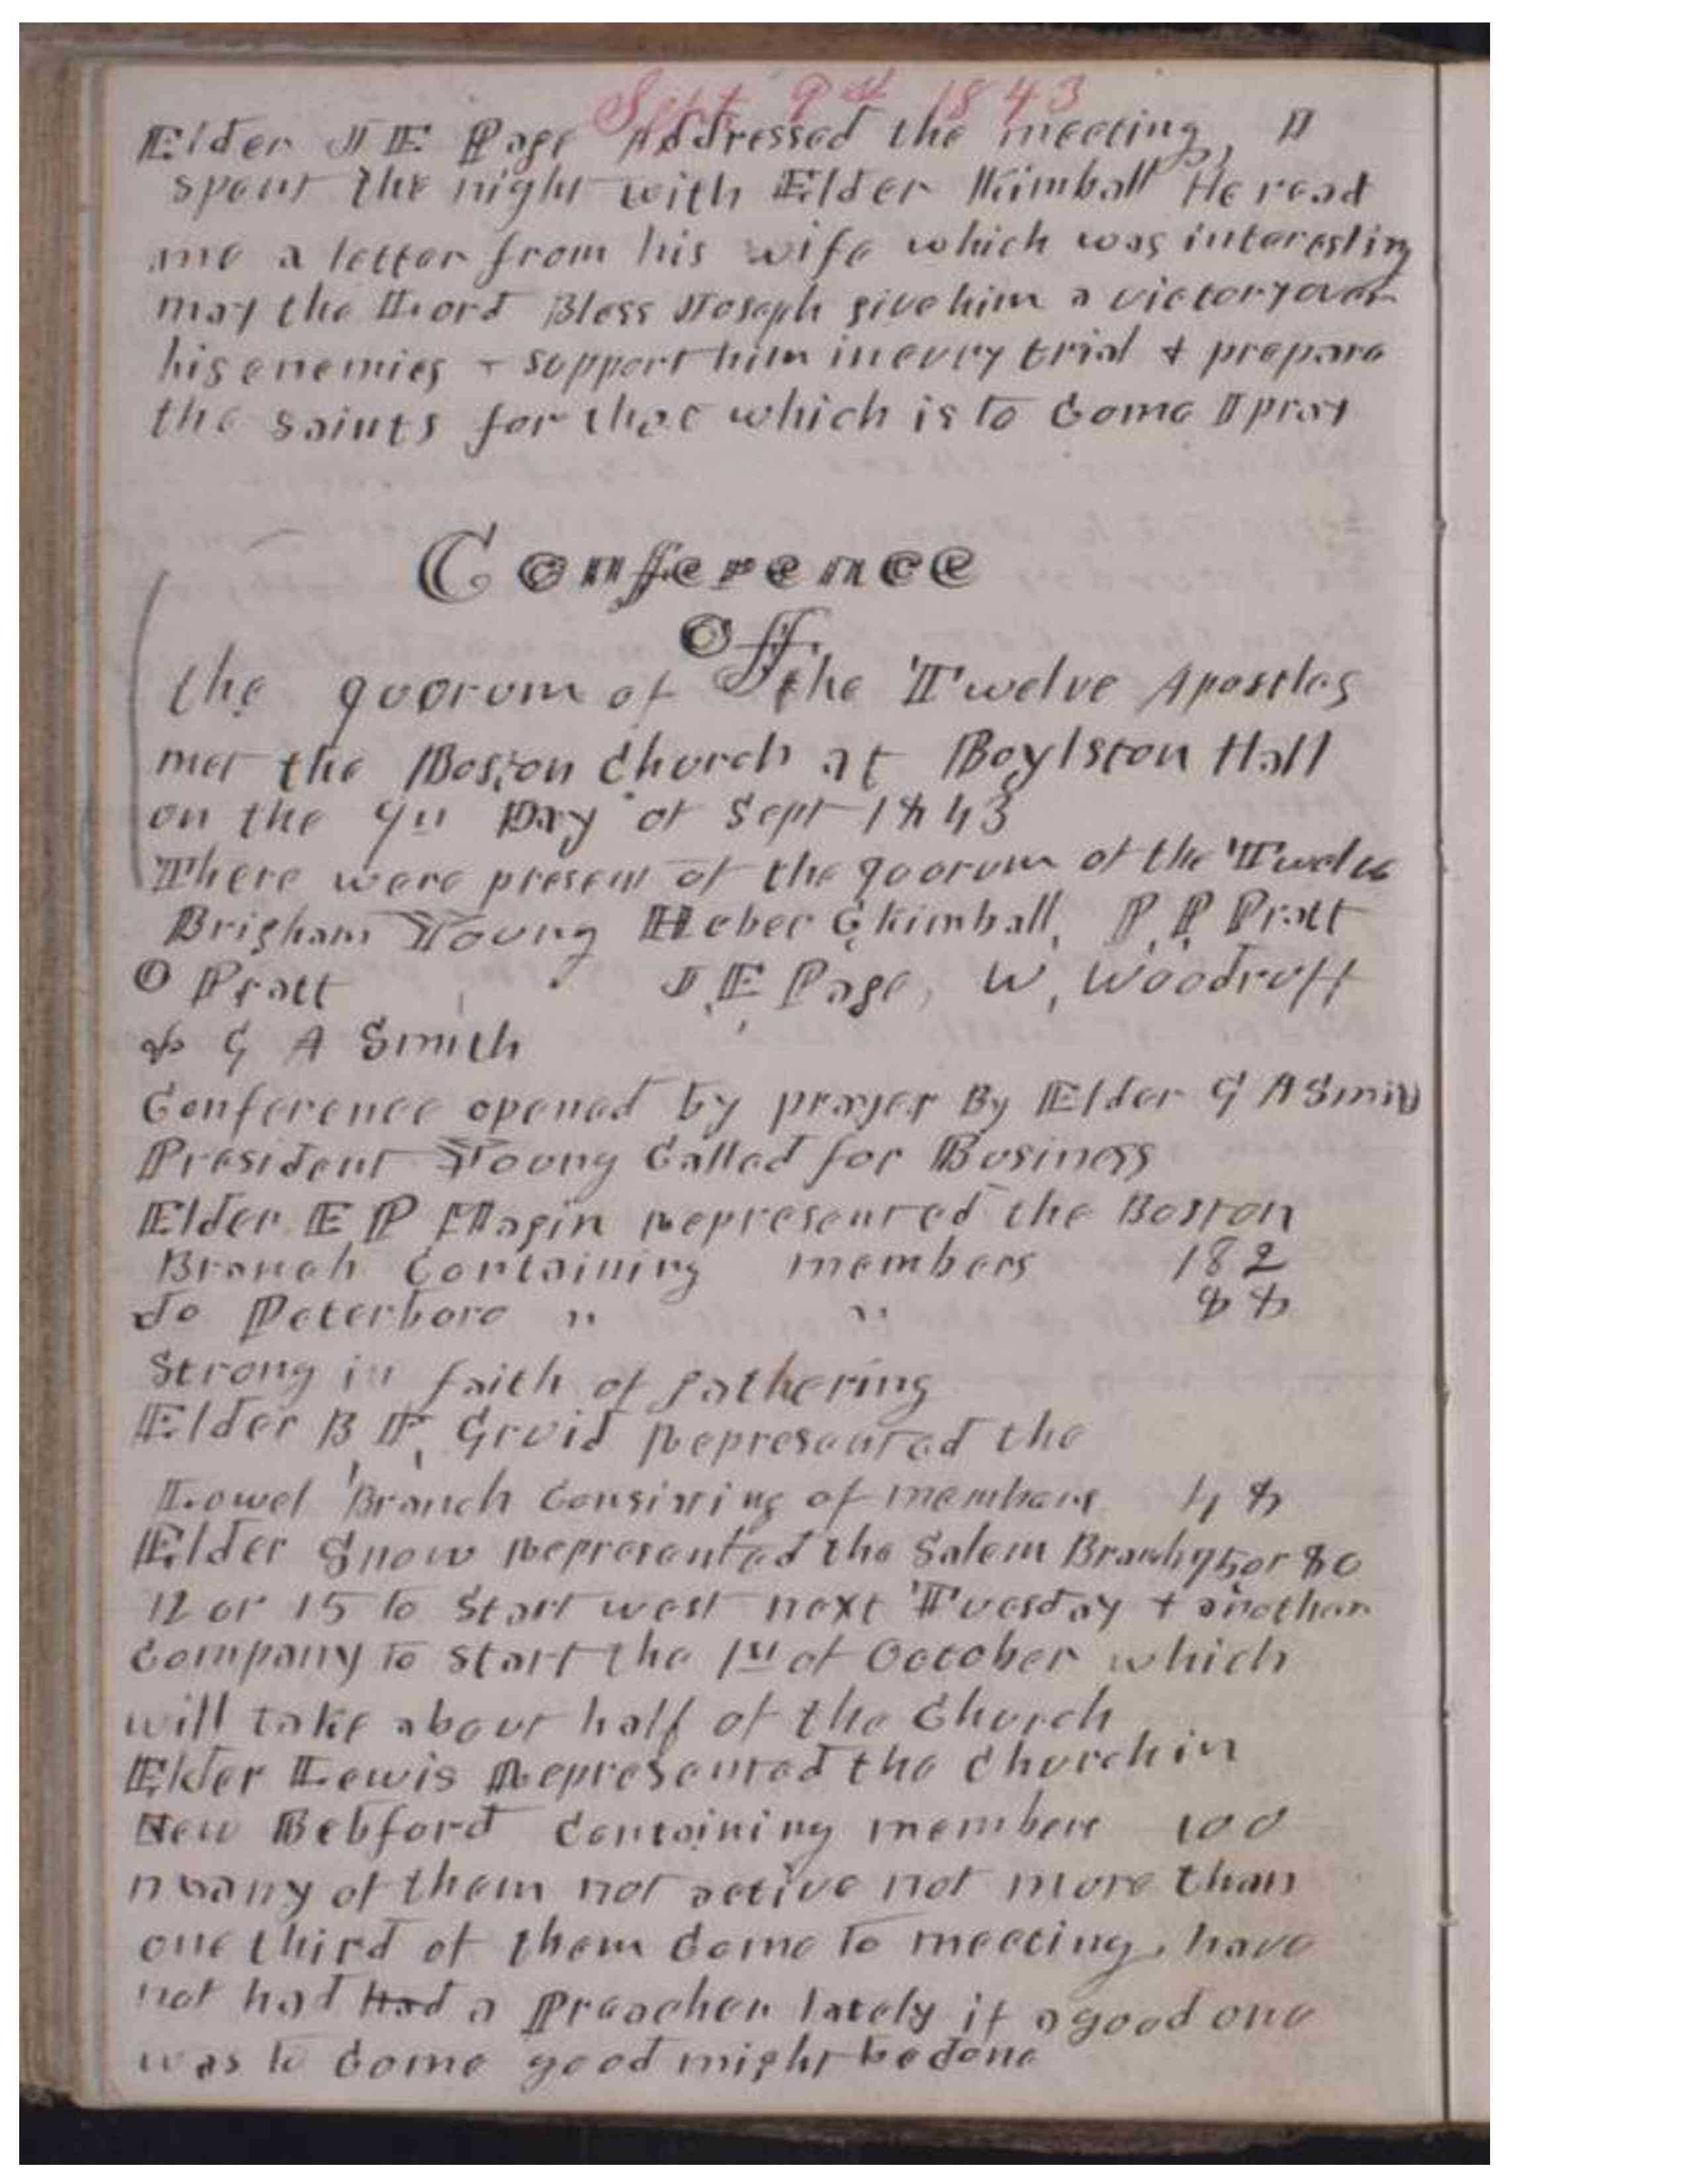 Sept 9th 1843
Elder J E Page Addressed the meeting, I
spent the night with Elder Kimball He read
me a letter from his wife which was interesting
may the Lord Bless Joseph give him a victory over
his enemies & support him in evry trial & prepare
the Saints for that which is to Come I pray
Conference
Off
the quorum of the Twelve Apostles
met the Boston Church at Boylston Hall
on the 9th Day of Sept 1843
There were present of the quorum of the Twelve
Brigham Young Heber C Kimball, P, P, Pratt
O Pratt J, E Page, W, Woodruff
& G A Smith
Conference opened by prayer By Elder G A Smith
President Young Called for Business
Elder E P Magin Represented the Boston
Branch Containing members 182
do Peterboro " " 88
Strong in faith of gathering
Elder B F, Represented the
Lowel Branch Consisting of members 48
Elder Snow Represented the Salem Branch 75 or 80
12 or 15 to Start west next Tuesday & another
Company to start the 1st of October which
will take about half of the Church
Elder Lewis Represented the Church in
New Bebford Containing members 100
many of them not active not more than
one third of them Come to meeting, have
not had had a Preacher lately if a good one
was to Come good might be done